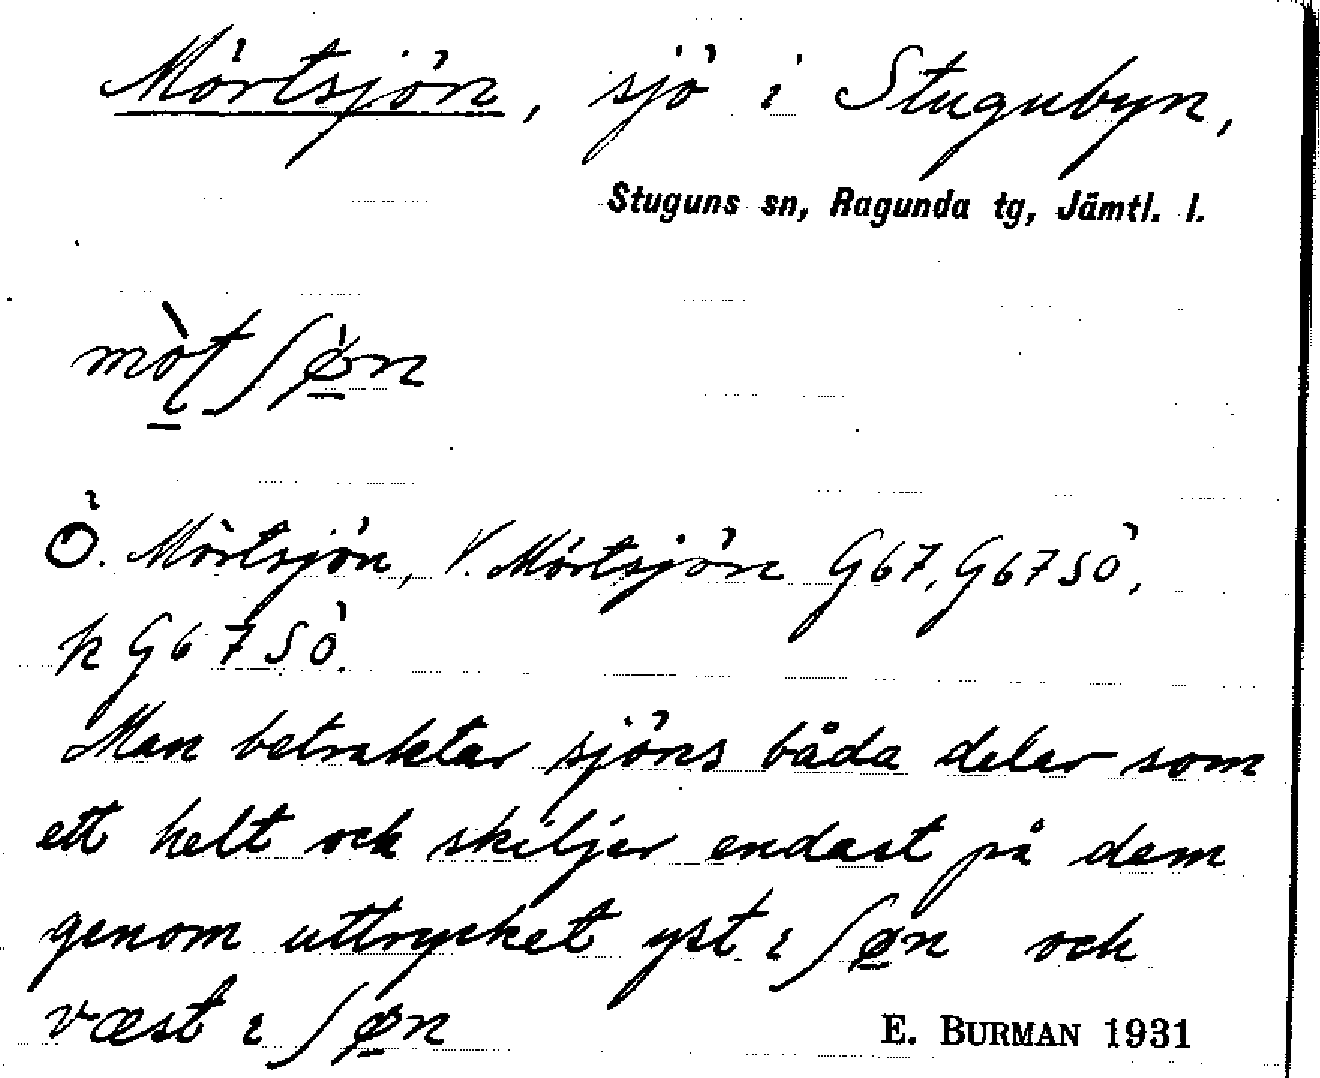 Mörtsjön, sjö i Stugubyn,
Stuguns sn, Ragunda tg, Jämtl. l.
mòt ʃø̀n
Ö. Mörtsjön, V. Mörtsjön G67, G67SÖ,
k G67SÖ.
Man betraktar sjöns båda delar som
ett helt och skiljer endast på dem
genom uttrycket yst ı ʃøn och
væst ı ʃøn
E. BURMAN 1931